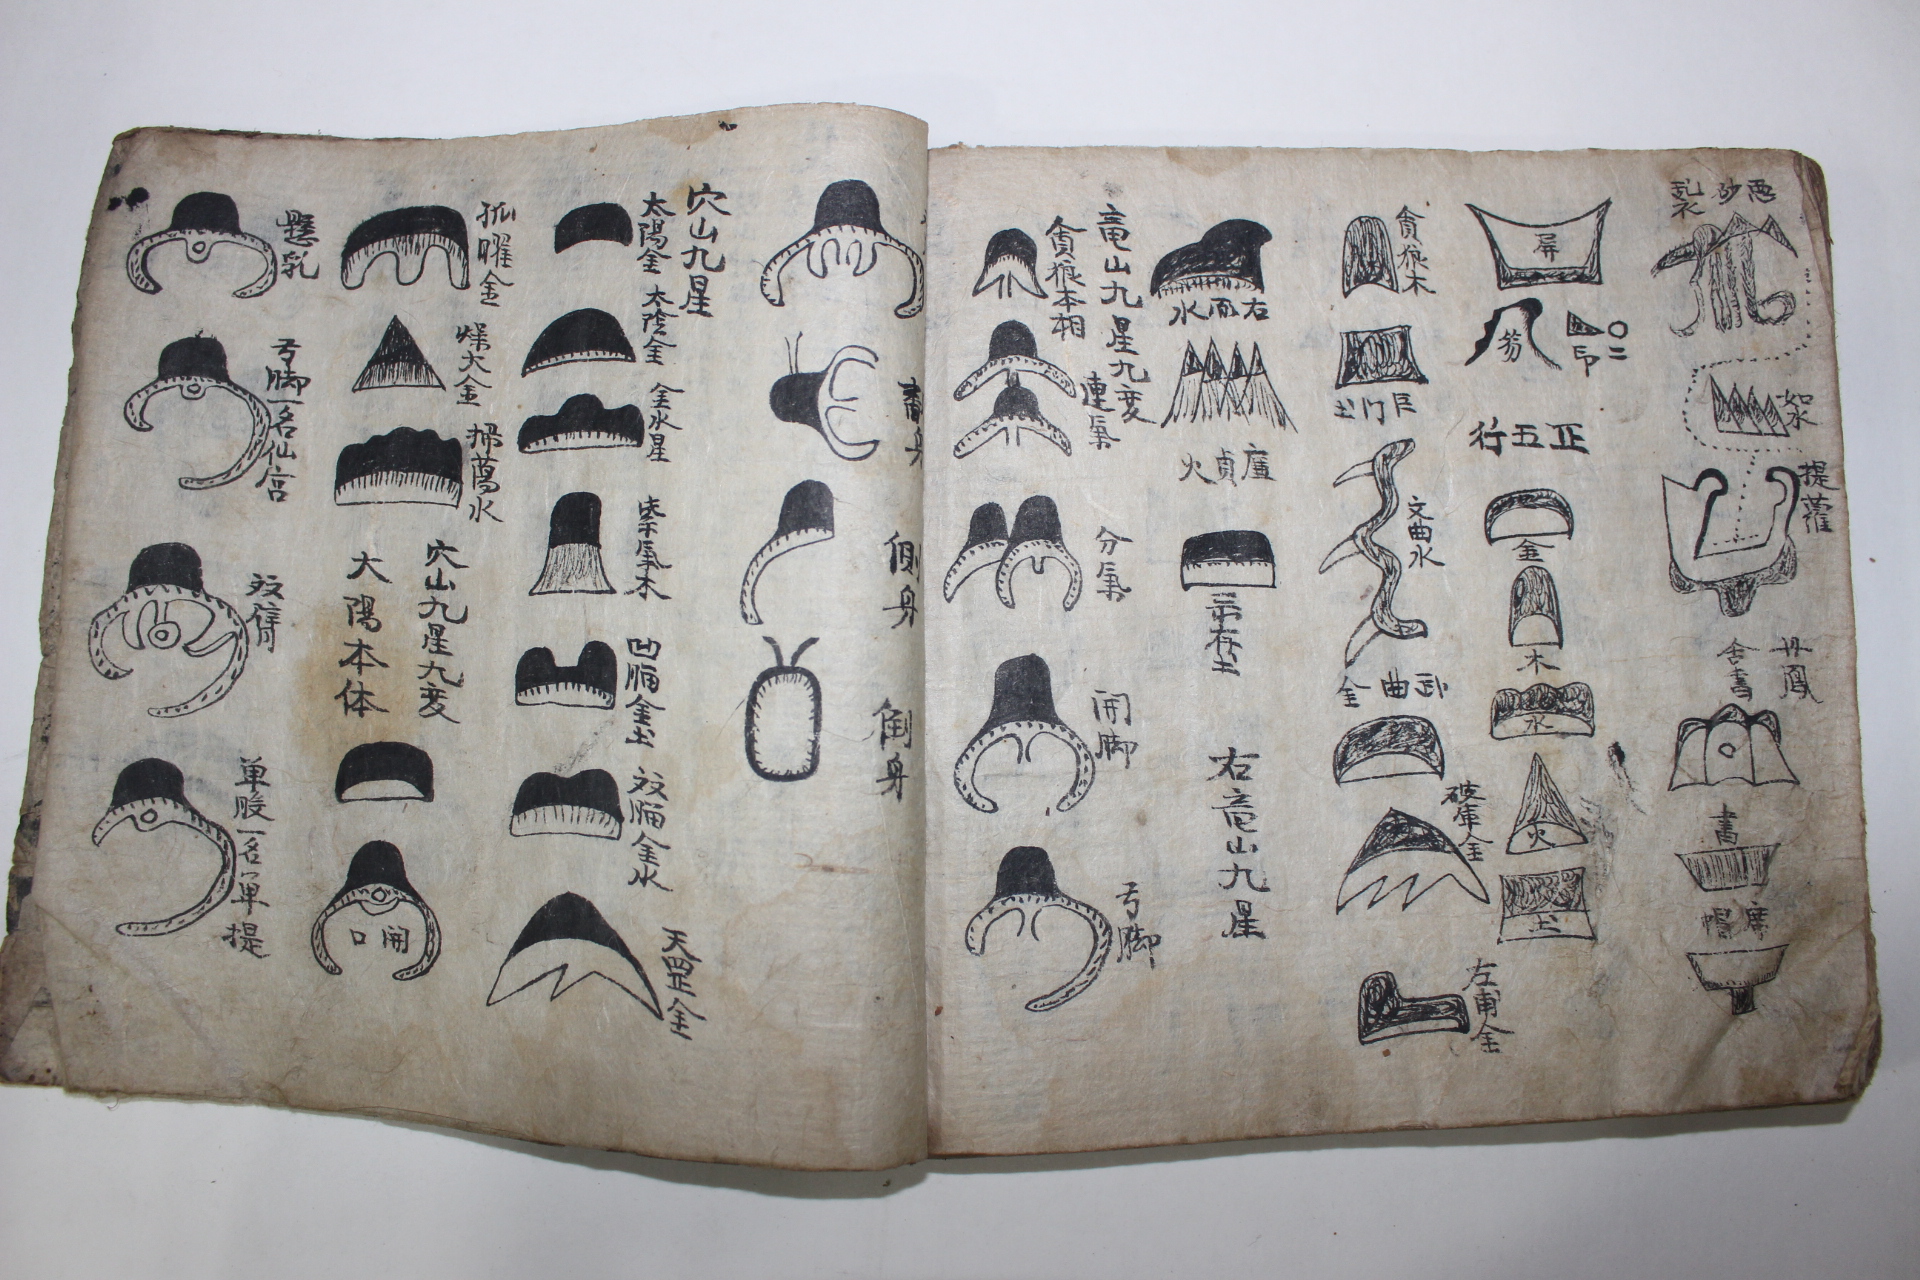 悪砂
乱衣
如水
提蘿
丹鳳
含書
書
席帽
屏
笏
印
正五行
金
木
水
火
土
貪狼木
巨門土
文曲水
武曲金
破軍金
左甫金
右面水
廉貞火
禄存土
右竜山九星
竜山九星九変
貪狼本相
連氣
分氣
開脚
弓脚
側身
倒身
穴山九星
太陽金
太陰金
金水星
紫氣木
凹腦金土
双腦金水
天罡金
孤曜金
燥火金
掃蕩水
穴山九星九変
太陽本体
開口
懸乳
弓脚一名仙宮
双臂
单股一名单提